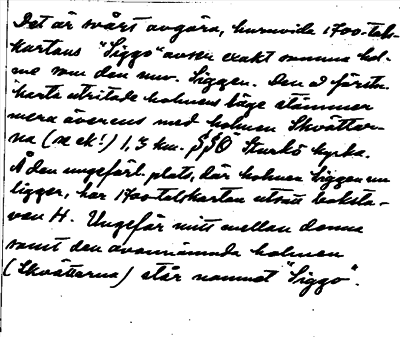 Det är svårt avgöra, huruvida 1700-tals-
kartans "Siggo" avser exakt samma hol-
me som den nuv. Siggen. Den å förstn.
karta utritade holmens läge stämmer
mera överens med holmen Skvättar-
na (se ek!) 1,3 km. SSÖ Sturkö kyrka.
Å den ungefärl. plats, där holmen Siggen nu
ligger, har 1700-talskartan utsatt boksta-
ven H. Ungefär mitt mellan denna
samt den ovannämnda holmen
(Skvätterna) står namnet "Siggo".